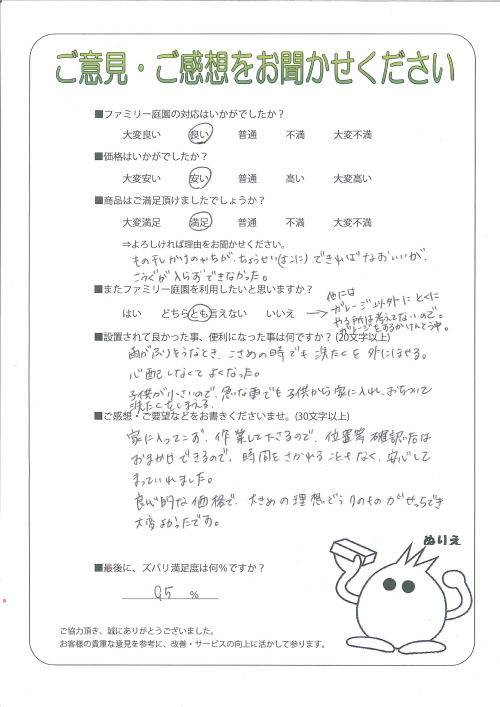 ご意見・ご感想をお聞かせください
■ファミリー庭園の対応はいかがでしたか？
大変良い 良い 普通 不満 大変不満
■価格はいかがでしたか？
大変安い 安い 普通 高い 大変高い
■商品はご満足頂けましたでしょうか？
大変満足 満足 普通 不満 大変不満
⇒よろしければ理由をお聞かせください。
もの干しかけのいちが、ちょうせい(よこに)できればなおいいが、
こうぐが入らずできなかった。
■またファミリー庭園を利用したいと思いますか？
はい どちらとも言えない いいえ
他には
ガレージ以外にとくに
やる所は考えてないので。
ガレージをするかけんとう中。
■設置されて良かった事、便利になった事は何ですか？(20文字以上)
雨がふりそうなとき、こさめの時でも洗たくを外にほせる。
心配しなくてよくなった。
子供が小さいので、急な雨でも子供から家に入れ、おちついて
洗たくをしまえる。
■ご感想・ご要望などをお書きくださいませ。(30文字以上)
家に入ってこず、作業して下さるので、位置等確認后は
おまかせできるので、時間をさかれることもなく、安心して
まっていれました。
良心的な価格で、大きめの理想どうりのものがせっちでき
大変よかったです。
ぬりえ
■最後に、ズバリ満足度は何％ですか？
95 ％
ご協力頂き、誠にありがとうございました。
お客様の貴重な意見を参考に、改善・サービスの向上に活かして参ります。